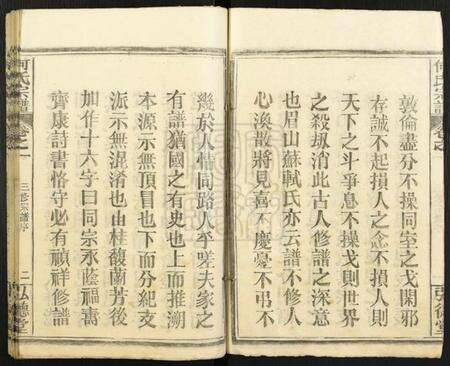 敦倫盡分不操同室之戈閑邪
存誠不起損人之念不損人則
天下之斗爭息不操戈則世界
之殺㧞消此古人修譜之深意
也眉山蘇軾氏亦云譜不修人
心渙散將見喜不慶憂不弔不
何氏宗譜
卷之一
三修宗譜序
二
弘德堂
幾於人情同路人乎嗟夫家之
有譜猶國之有史也上而推溯
本源示無頂冒也下面分紀支
派示無混淆也由桂馥蘭芳後
加作十六字曰同宗承蔭福壽
齊康詩書恪守必有禎祥修譜